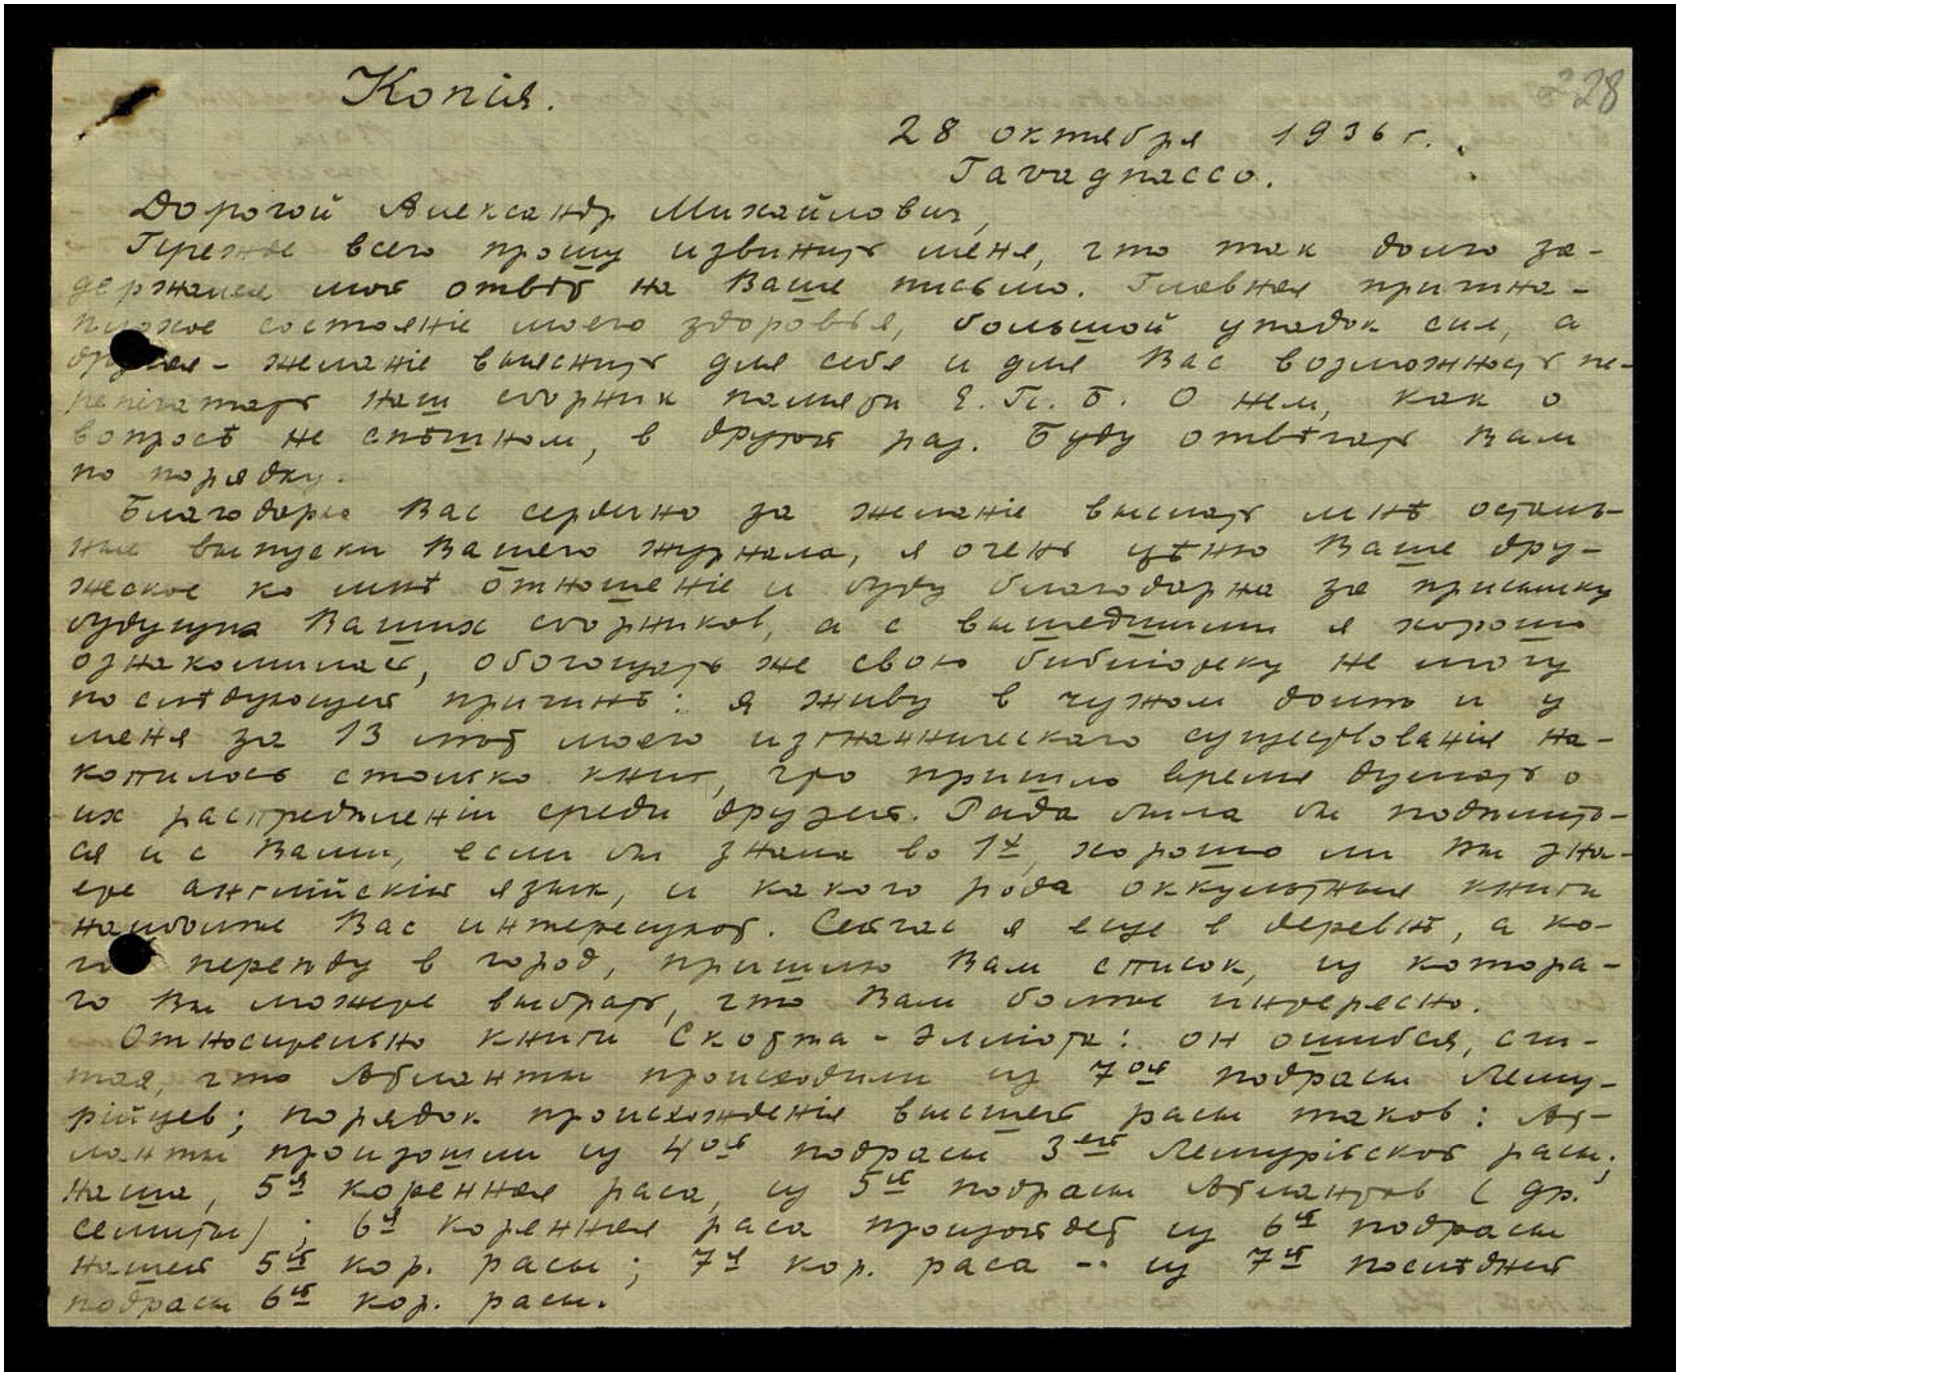 Копія.
228
28 октября 1936 г.
Tavagnacco.
Дорогой Александр Михайлович,
Прежде всего прошу извинить меня, что так долго за-
держался мой отвѣт на Ваше письмо. Главная причина -
плохое состояніе моего здоровья, большой упадок сил, а
другая - желаніе выяснить для себя и для Вас возможность пе-
репечатать наш сборник памяти Е. П. Б. О нем, как о
вопросѣ не спѣшном, в другой раз. Буду отвѣчать Вам
по порядку.
Благодарю Вас сердечно за желаніе выслать мнѣ осталь-
ные выпуски Вашего журнала, я очень цѣню Ваше дру-
жеское ко мнѣ отношеніе и буду благодарна за присылку
будущих Ваших сборников, а с вышедшими я хорошо
ознакомилась, обогощать же свою библіотеку не могу
по слѣдующей причинѣ: я живу в чужом домѣ и у
меня за 13 лѣт моего изгнанническаго существованія на-
копилось столько книг, что пришло время думать о
их распредѣленіи среди друзей. Рада была бы подѣлить-
ся и с Вами, если бы знала во 1х, хорошо ли Вы зна-
ете англійскій язык, и какого рода оккультныя книги
наиболѣе Вас интересуют. Сейчас я еще в деревнѣ, а ко-
гда перейду в город, пришлю Вам список, из котора-
го Вы можете выбрать, что Вам болѣе интересно.
Относительно книги Скотта-Элліота: он ошибся, счи-
тая, что Атланты происходили из 7ой подрасы Лему-
рійцев; порядок происхожденія высшей расы таков: Ат-
ланты произошли из 4ой подрасы 3ей Лемурійской расы;
наша, 5я коренная раса, из 5й подрасы Атлантов (др.
семиты); 6я коренная раса произойдет из 6й подрасы
нашей 5й кор. расы; 7я кор. раса -- из 7й послѣдней
подрасы 6й кор. расы.